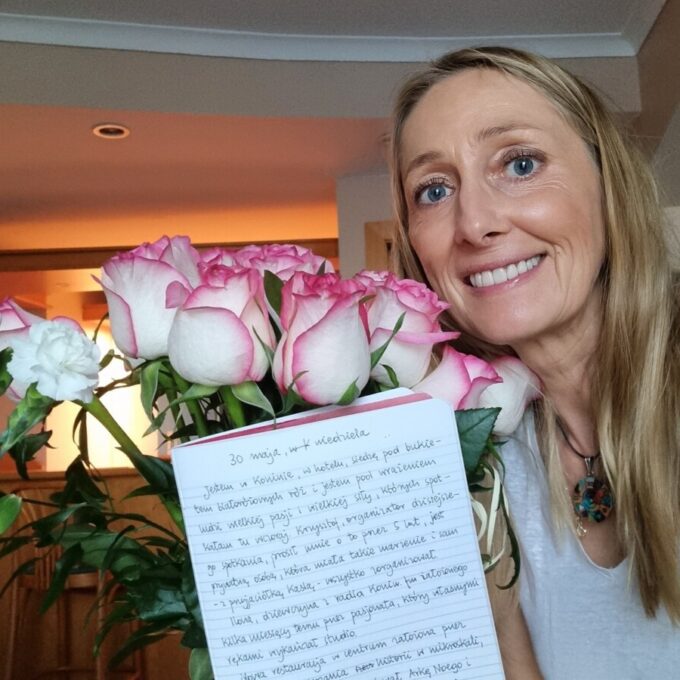 30 maja, w-k niedziela
Jestem w Koninie, w hotelu, siedzę pod bukie-
tem białoróżowych róż i jestem pod wrażeniem
ludzi wielkiej pasji i wielkiej siły, których spot-
kałam tu wczoraj. Krzysztof, organizator dzisiejsze-
go spotkania, prosił mnie o to przez 5 lat, jest
prywatną osobą, która miała takie marzenie i sam
- z przyjaciółką Kasią - wszystko zorganizował.
Ilona, dziewczyna z radia Konin fm założonego
kilka miesięcy temu przez pasjonata, który własnymi
rękami wykańczał studio.
Nowa restauracja w centrum założona przez
historii w mikroskali,
Arkę Noego i